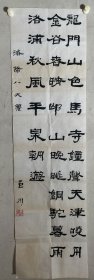 龍門山色馬寺鐘聲天津曉月
金谷春晴邙山晚眺銅駝暮雨
洛浦秋風平泉朝遊
洛陽八大景